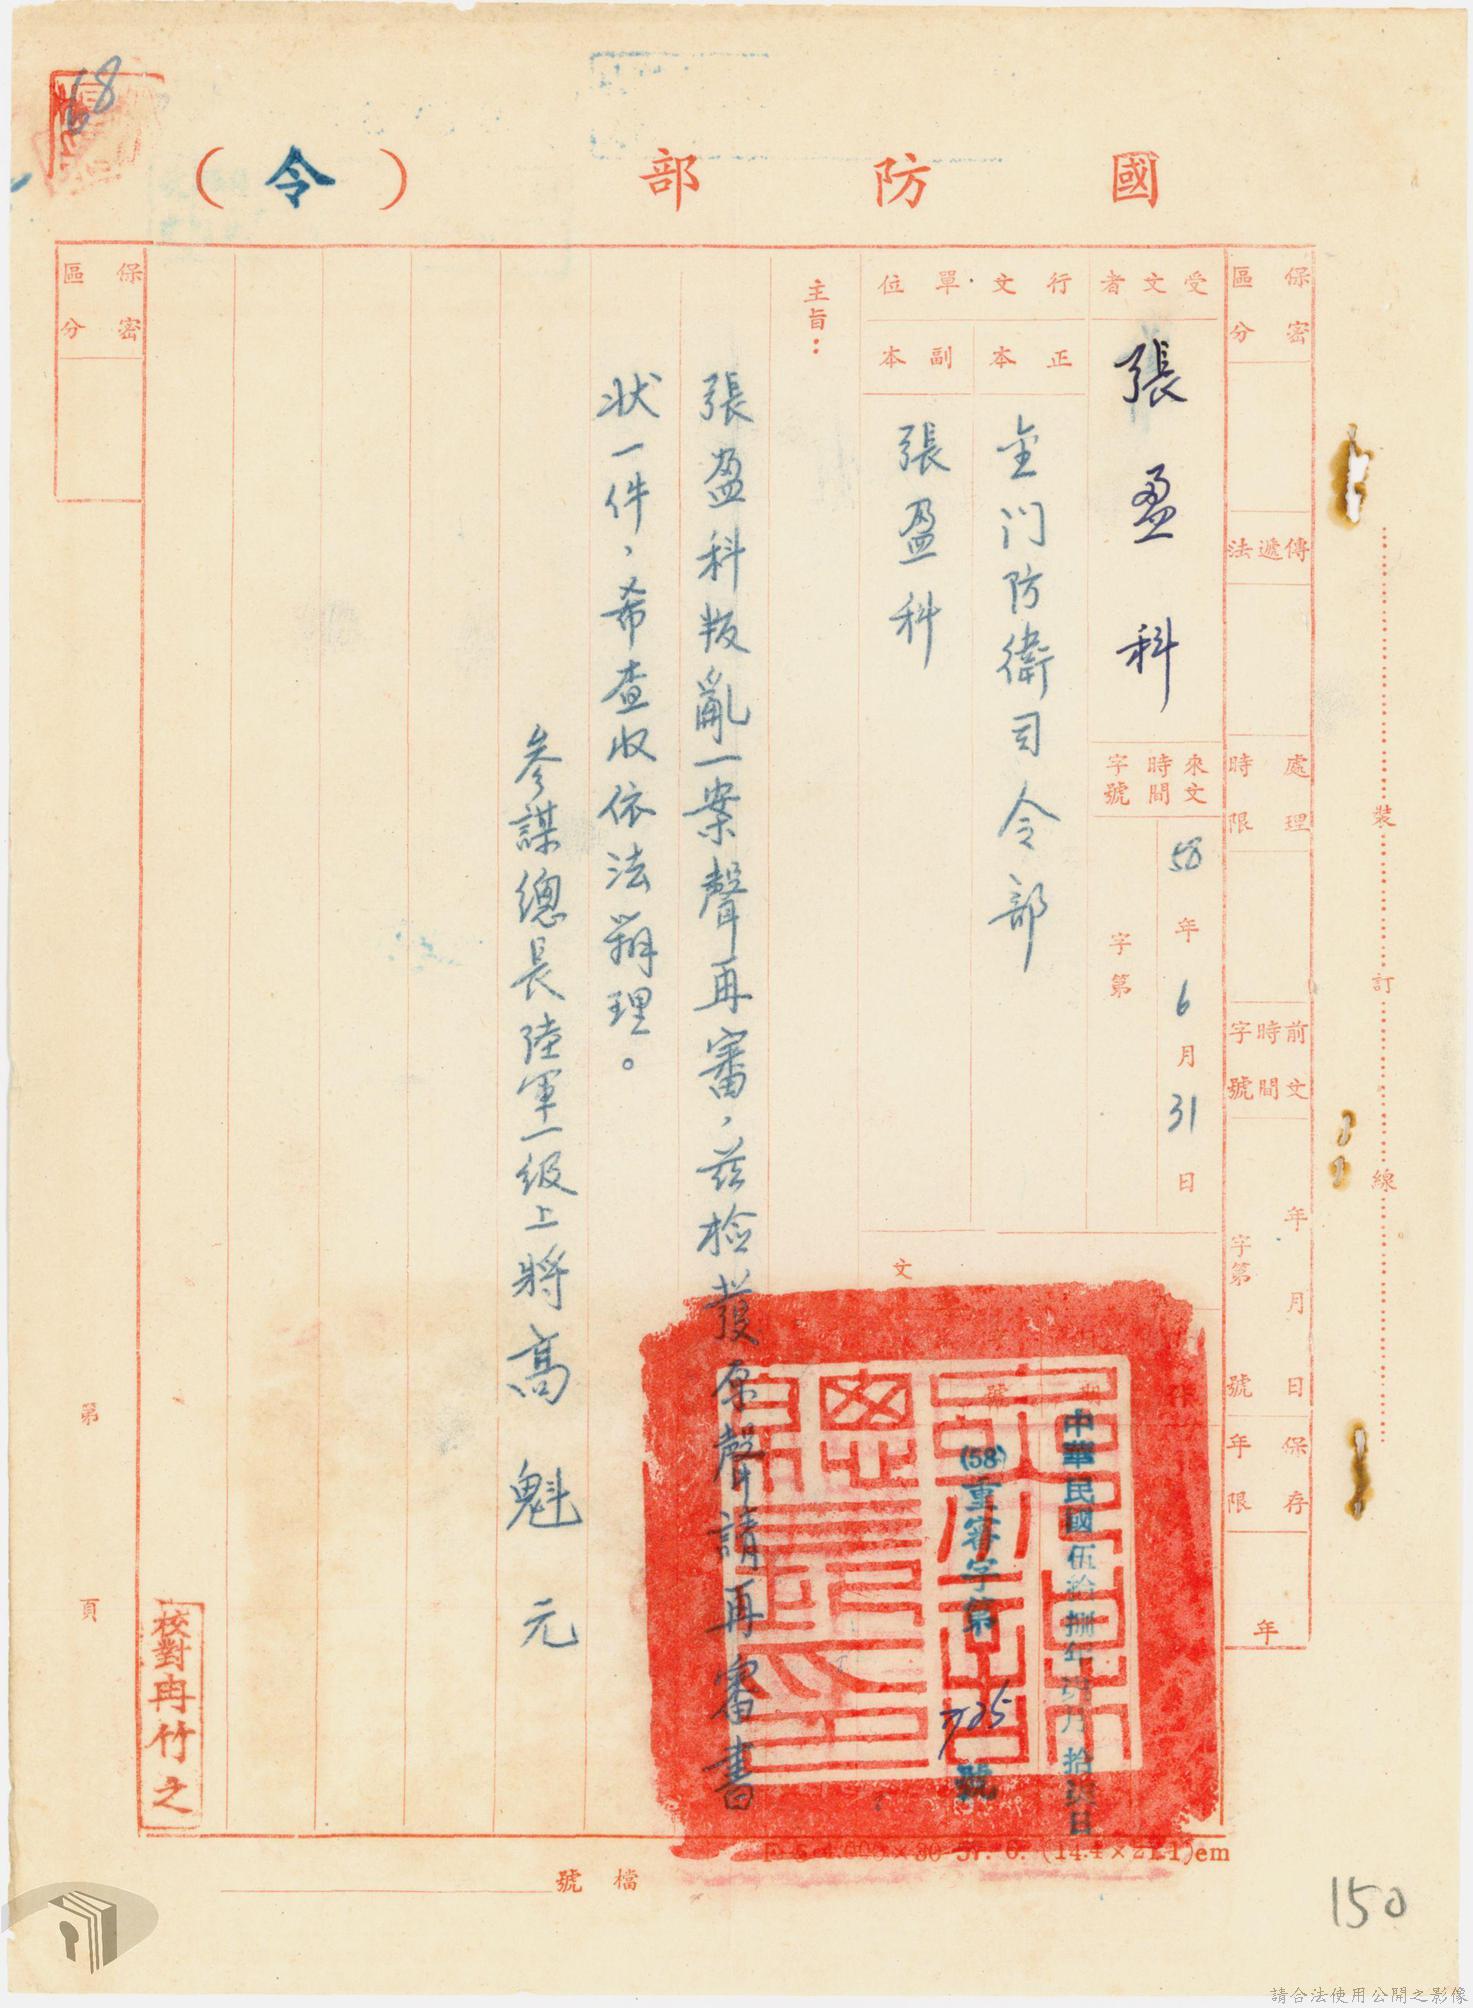 68
國防部（令）
保密區分
傳遞法
處理時限
前文時間字號
年月日
字第號
保存年限
年
受文者
張盈科
來文時間字號
58年6月31日
字第
行文單位
正本
金门防衛司令部
副本
張盈科
文
中華民國伍拾捌年
月拾
日
(58)重審字第
號
主旨：
張盈科叛亂一案聲再審，茲檢發原聲請再審書
状一件，希查收依法辦理。
參謀總長陸軍一級上將高魁元
校對冉竹之
保密區分
第頁
裝訂線
檔號
(14.4×21.1)em
150
請合法使用公開之影像